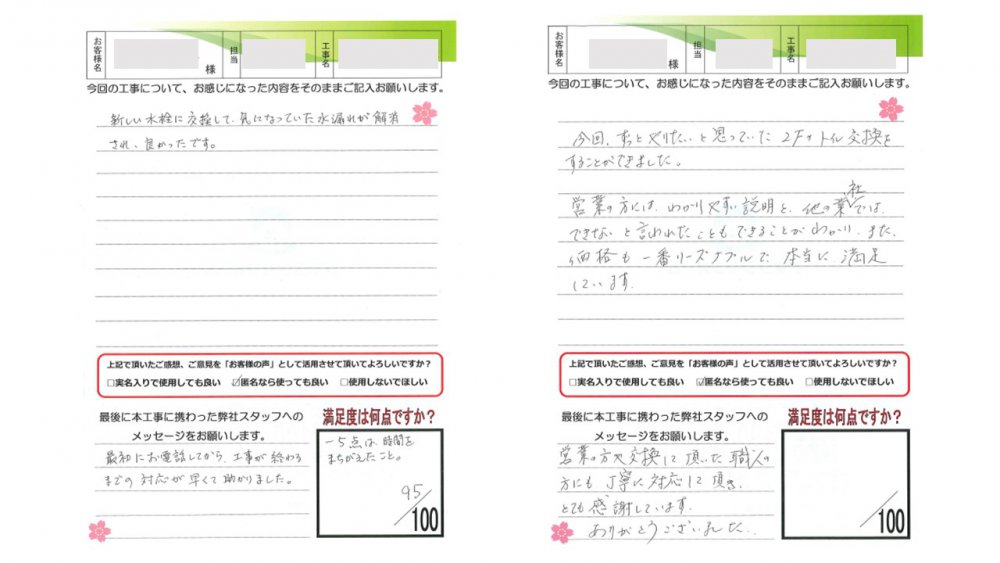 お客様名
様
担当
工事名
今回の工事について、お感じになった内容をそのままご記入お願いします。
新しい水栓に交換して、気になっていた水漏れが解消
され、良かったです。
上記で頂いたご感想、ご意見を「お客様の声」として活用させて頂いてよろしいですか？
□実名入りで使用しても良い ☑匿名なら使っても良い □使用しないでほしい
最後に本工事に携わった弊社スタッフへの
メッセージをお願いします。
最初にお電話してから、工事が終わる
までの対応が早くて助かりました。
満足度は何点ですか？
－5点は時間を
まちがえたこと。
95
/100
お客様名
様
担当
工事名
今回の工事について、お感じになった内容をそのままご記入お願いします。
今回、ずっとやりたいと思っていた2Fのトイレ交換を
することができました。
営業の方には、わかりやすい説明と、他の業社では、
できないと言われたこともできることがわかり、また、
価格も一番リーズナブルで、本当に満足
しています。
上記で頂いたご感想、ご意見を「お客様の声」として活用させて頂いてよろしいですか？
□実名入りで使用しても良い ☑匿名なら使っても良い □使用しないでほしい
最後に本工事に携わった弊社スタッフへの
メッセージをお願いします。
営業の方や交換して頂いた職人の
方にも丁寧に対応して頂き、
とても感謝しています。
ありがとうございました。
満足度は何点ですか？
/100